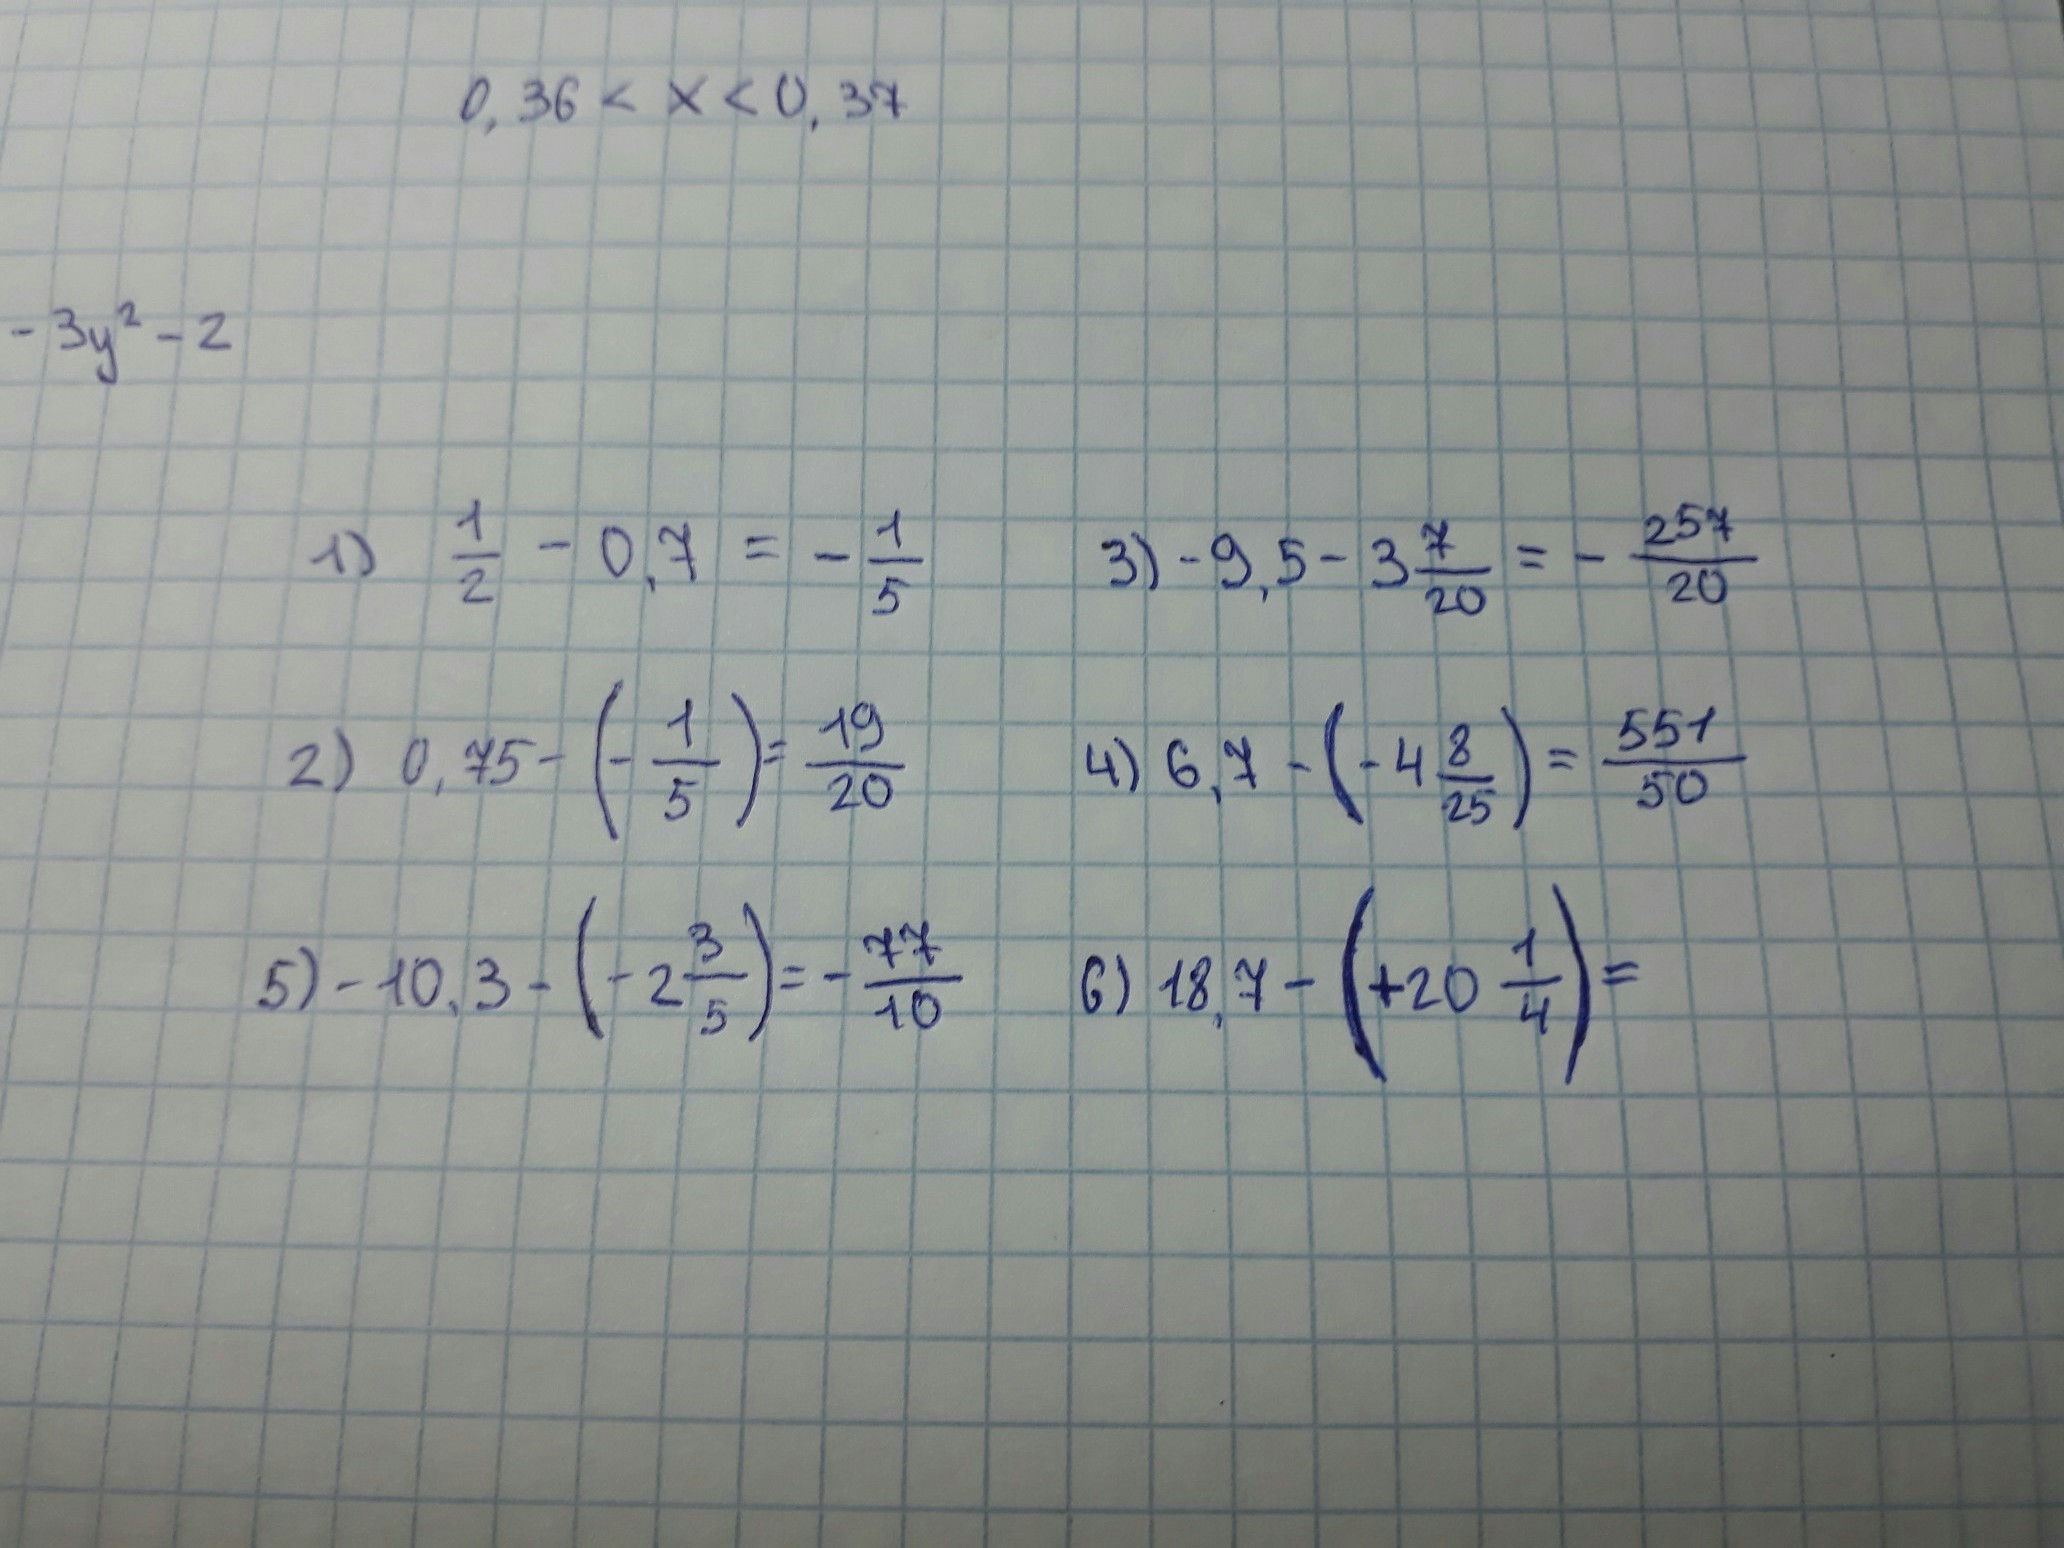 0,36 < x < 0,37
-3y² - 2
1) 1/2 - 0,7 = - 1/5
3) -9,5 - 3 7/20 = - 257/20
2) 0,75 - (- 1/5) = 19/20
4) 6,7 - (-4 8/25) = 551/50
5) -10,3 - (-2 3/5) = - 77/10
6) 18,7 - (+20 1/4) =